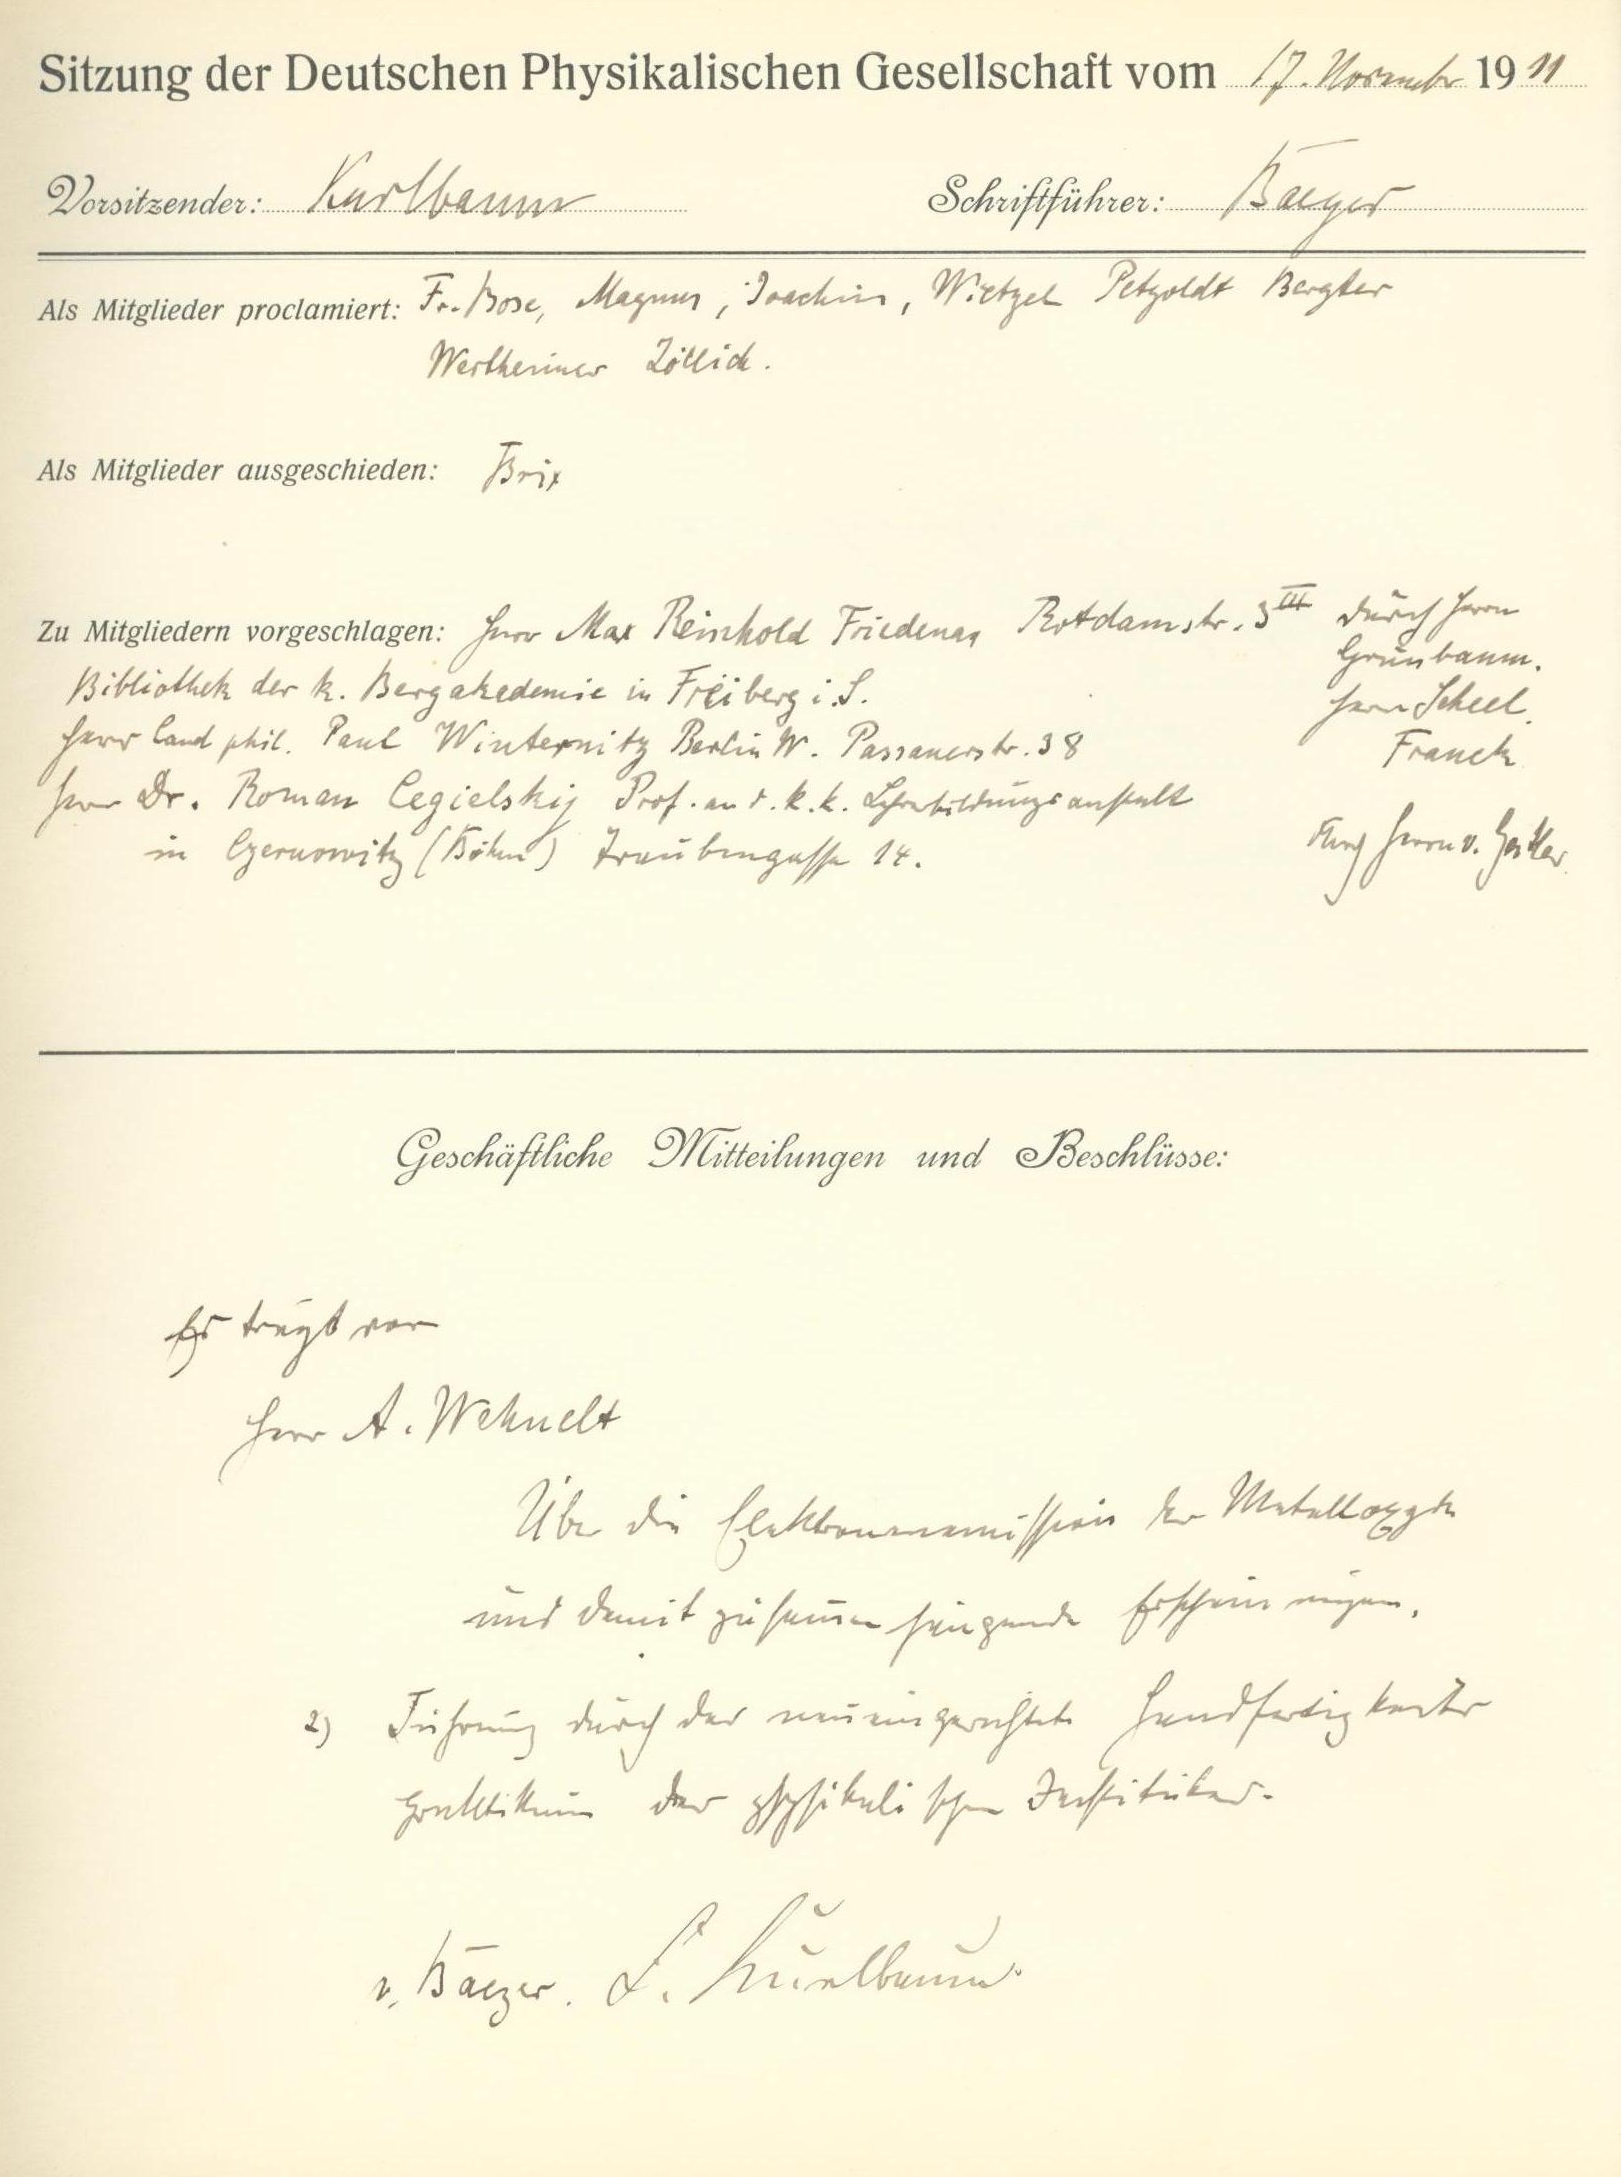 Sitzung der Deutschen Physikalischen Gesellschaft vom 17. November 1911
Vorsitzender: Kurlbaum Schriftführer: Baeyer
Als Mitglieder proclamiert: Fr. Bose, Magnus, Joachim, Wietzel Petzoldt Bergter
Wertheimer Zöllich.
Als Mitglieder ausgeschieden: Brix
Zu Mitgliedern vorgeschlagen: Herr Max Reinhold Friedenau Potdamstr. 3III durch Herrn
Grünbaum.
Bibliothek der k. Bergakademie in Freiberg i. S. Herrn Scheel.
Herr Cand phil. Paul Winternitz Berlin W. Passauerstr. 38 Franck
Herr Dr. Roman Cegielskij Prof. an d. k. k. Lehrerbildungsanstalt
in Czernowitz (Böhm) Traubengasse 14. durch Herrn v. Geitler.
Geschäftliche Mitteilungen und Beschlüsse:
Es trägt vor
Herr A. Wehnelt
Über die Elektronenemission der Metalloxyde
und damit zusammenhängende Erscheinungen.
2) Führung durch das neueingerichtete Handfertigkeits
praktikum des physikalischen Institutes.
v. Baeyer. F. Kurlbaum.